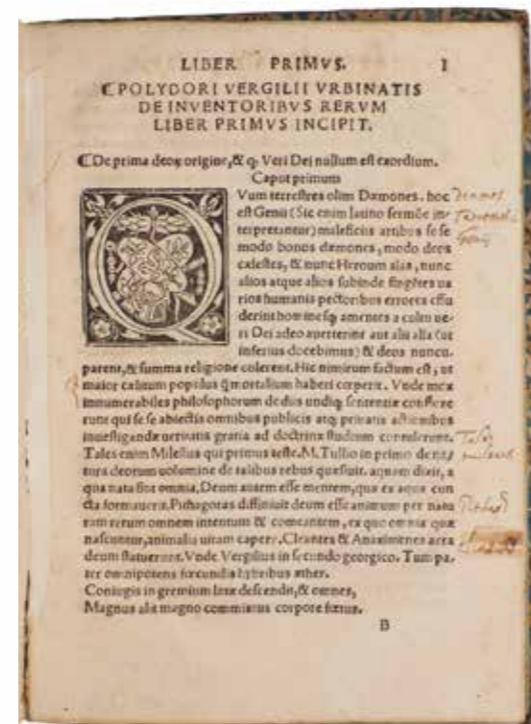 LIBER PRIMVS. I
⁋POLYDORI VERGILII VRBINATIS
DE INVENTORIBVS RERVM
LIBER PRIMVS INCIPIT.
⁋De prima deoꝝ origine, & ꝙ Veri Dei nullum est exordium.
Caput primum
QVum terrestres olim Dæmones. hoc
est Genii (Sic enim latino sermõe in
terpretantur) maleficus artibus se se
modo bonos dæmones, modo deos
cælestes, & nunc Heroum alas, nunc
alios atque alios subinde fingẽtes ua
rios humanis pectoribus errores effu
derint hominesq; amentes a cultu ue
ri Dei adeo auerterint aut alii alia (ut
inferius docebimus) & deos nuncu.
parent, & summa religione colerent. Hic nimirum factum est, ut
maior cælitum populus q̃ mortalium haberi cœperit. Vnde mox
innumerabiles philosophorum de diis undiq; sententiæ
runt qui se se abiectis omnibus publicis atq; priuatis actionibus
inuestigandæ ueritatis gratia ad doctrinæ studium contulerunt.
Tales enim Milesius qui primus teste. M. Tullio in primo de na
tura deorum uolumine de talibus rebus quæsiuit. aquam dixit, a
qua nata sint omnia, Deum autem esse mentem, quæ ex aqua cun
cta formauerit. Pithagoras diffiniuit deum esse animum per natu
ram rerum omnem intentum & comeantem, ex quo omnia quæ
nascuntur, animalia uitam capere. Cleantes & Anaximenes aera
deum statuerunt. Vnde Vergilius in secundo georgico. Tum pa-
ter omnipotens fœcundis hybribus æther.
Coniugis in gremium latæ descendit, & omnes,
Magnus alit magno commistus corpore fœtus.
B